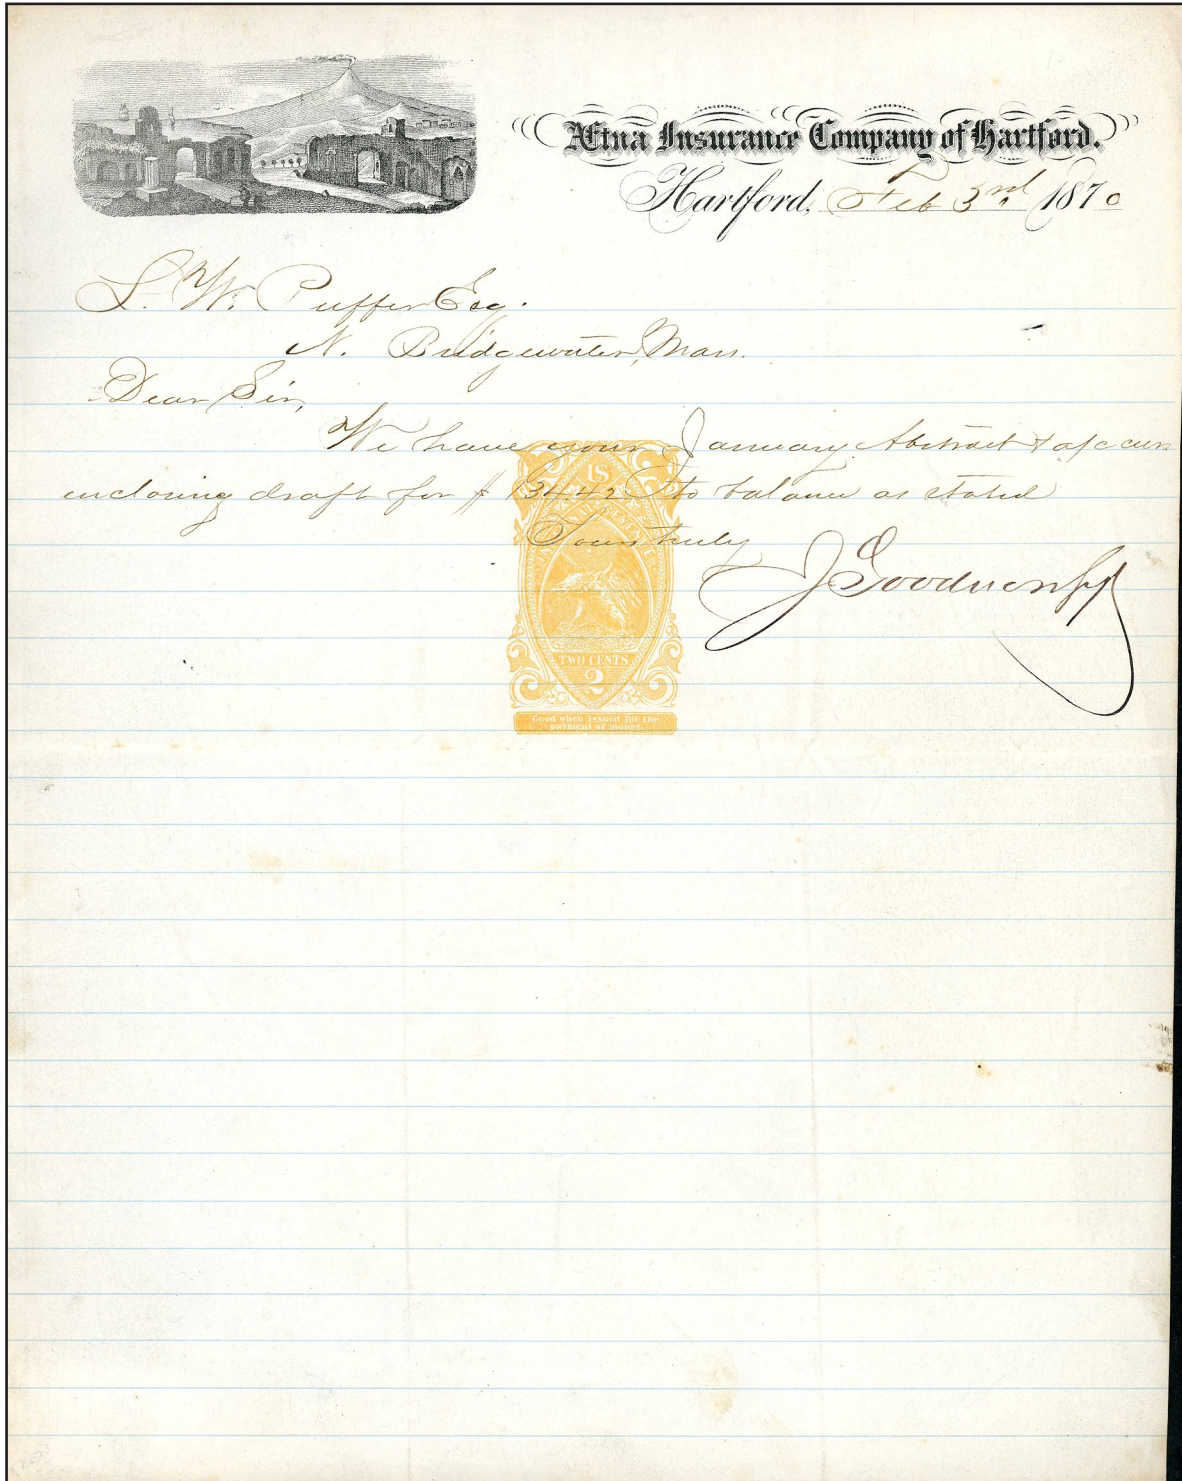 Ætna Insurance Company of Hartford.
Hartford, Feb 3rd 1870
L. W. Puffer Esq.
N. Bridgewater, Mass.
Dear Sir,
We have your January Abstract & a/c curr
enclosing draft for $134.42 to balance as stated
Yours truly
J Goodnow
US
INTER. REVENUE
TWO CENTS
2
Good when issued for the
payment of money